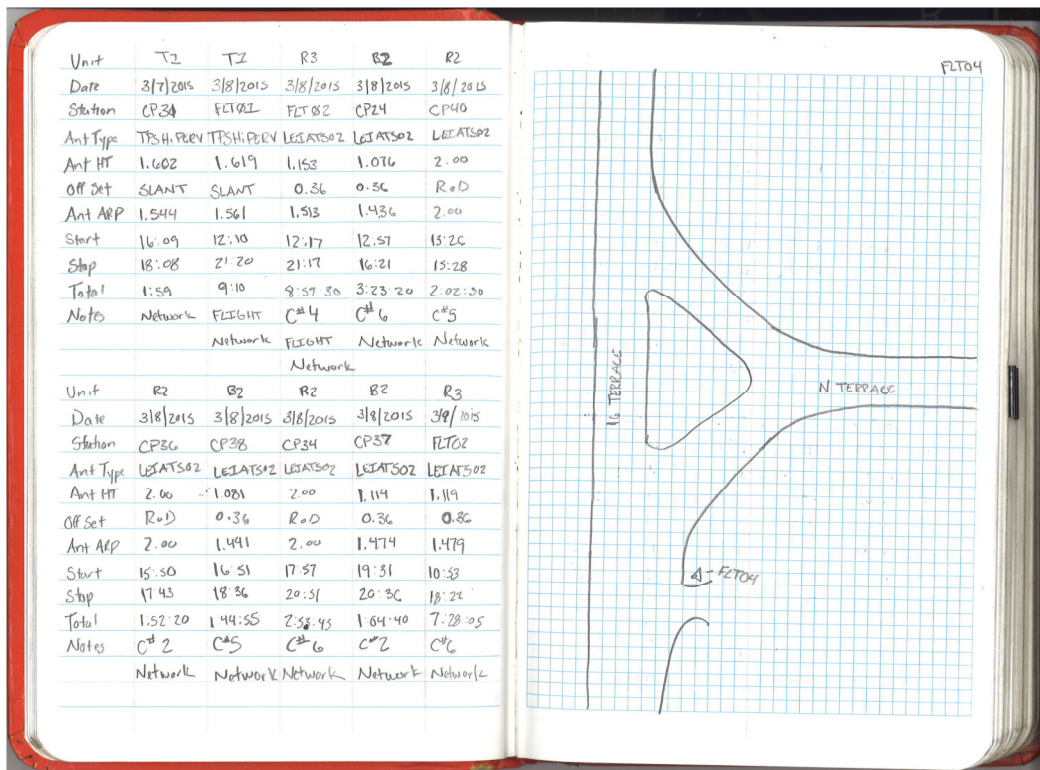 Unit T1 T1 R3 B2 R2
Date 3/7/2015 3/8/2015 3/8/2015 3/8/2015 3/8/2015
Station CP31 FLT01 FLT02 CP24 CP40
Ant Type TPSHiPERV TPSHiPERV LEIATS02 LEIATS02 LEIATS02
Ant HT 1.602 1.619 1.153 1.076 2.00
Off Set SLANT SLANT 0.36 0.36 RoD
Ant ARP 1.544 1.561 1.513 1.436 2.00
Start 16:09 12:10 12:17 12:57 13:26
Stop 18:08 21:20 21:17 16:21 15:28
Total 1:59 9:10 8:59:30 3:23:20 2:02:30
Notes Network FLIGHT C#4 C#6 C#5
Network FLIGHT Network Network
Network
Unit R2 B2 R2 B2 R3
Date 3/8/2015 3/8/2015 3/8/2015 3/8/2015 3/9/2015
Station CP36 CP38 CP34 CP37 FLT02
Ant Type LEIATS02 LEIATS02 LEIATS02 LEIATS02 LEIATS02
Ant HT 2.00 1.081 2.00 1.114 1.119
Off Set RoD 0.36 RoD 0.36 0.36
Ant ARP 2.00 1.441 2.00 1.474 1.479
Start 15:50 16:51 17:57 19:31 10:53
Stop 17:43 18:36 20:51 20:36 18:22
Total 1:52:20 1:44:55 2:53:45 1:04:40 7:28:05
Notes C#2 C#5 C#6 C#2 C#6
Network Network Network Network Network
FLT04
16 TERRACE
N TERRACE
FLT04